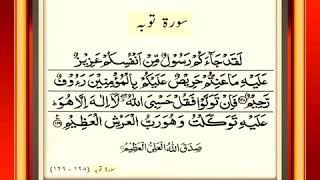 سورة توبہ
لَقَدْ جَآءَكُمْ رَسُوْلٌ مِّنْ اَنْفُسِكُمْ عَزِيْزٌ
عَلَيْهِ مَا عَنِتُّمْ حَرِيْصٌ عَلَيْكُمْ بِالْمُؤْمِنِيْنَ رَءُوْفٌ
رَّحِيْمٌ ۝۱۲۸ فَاِنْ تَوَلَّوْا فَقُلْ حَسْبِيَ اللّٰهُ لَآ اِلٰهَ اِلَّا هُوَ
عَلَيْهِ تَوَكَّلْتُ وَهُوَ رَبُّ الْعَرْشِ الْعَظِيْمِ ۝۱۲۹
صَدَقَ اللّٰهُ الْعَلِيُّ الْعَظِيْمُ
سورة توبہ (۱۲۸ - ۱۲۹)